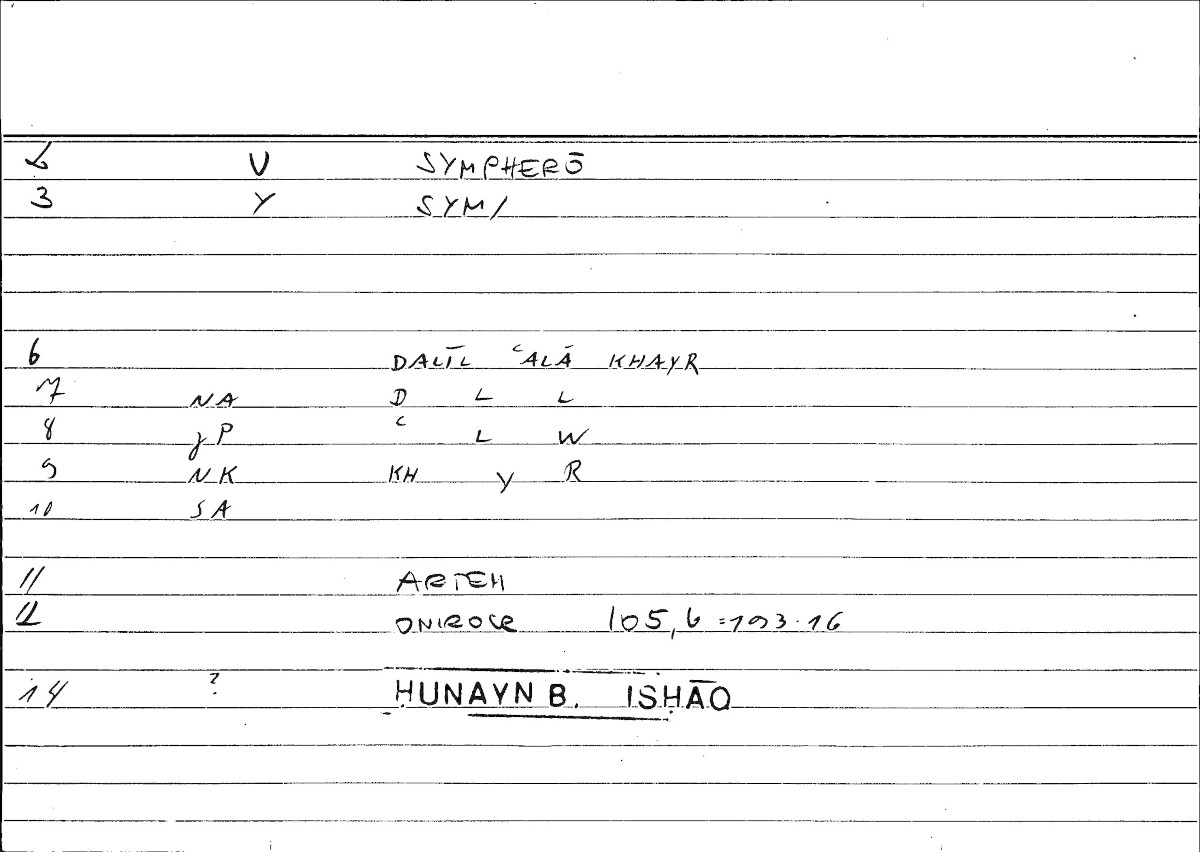 2 V SYMPHERŌ
3 Y SYM/
6 DALĪL ʿALĀ KHAYR
7 NA D L L
8 JP ʿ L W
9 NK KH Y R
10 SA
11 ARTEM
12 ONIROCR 105,6=193.16
14 ? ḤUNAYN B. ISḤĀQ